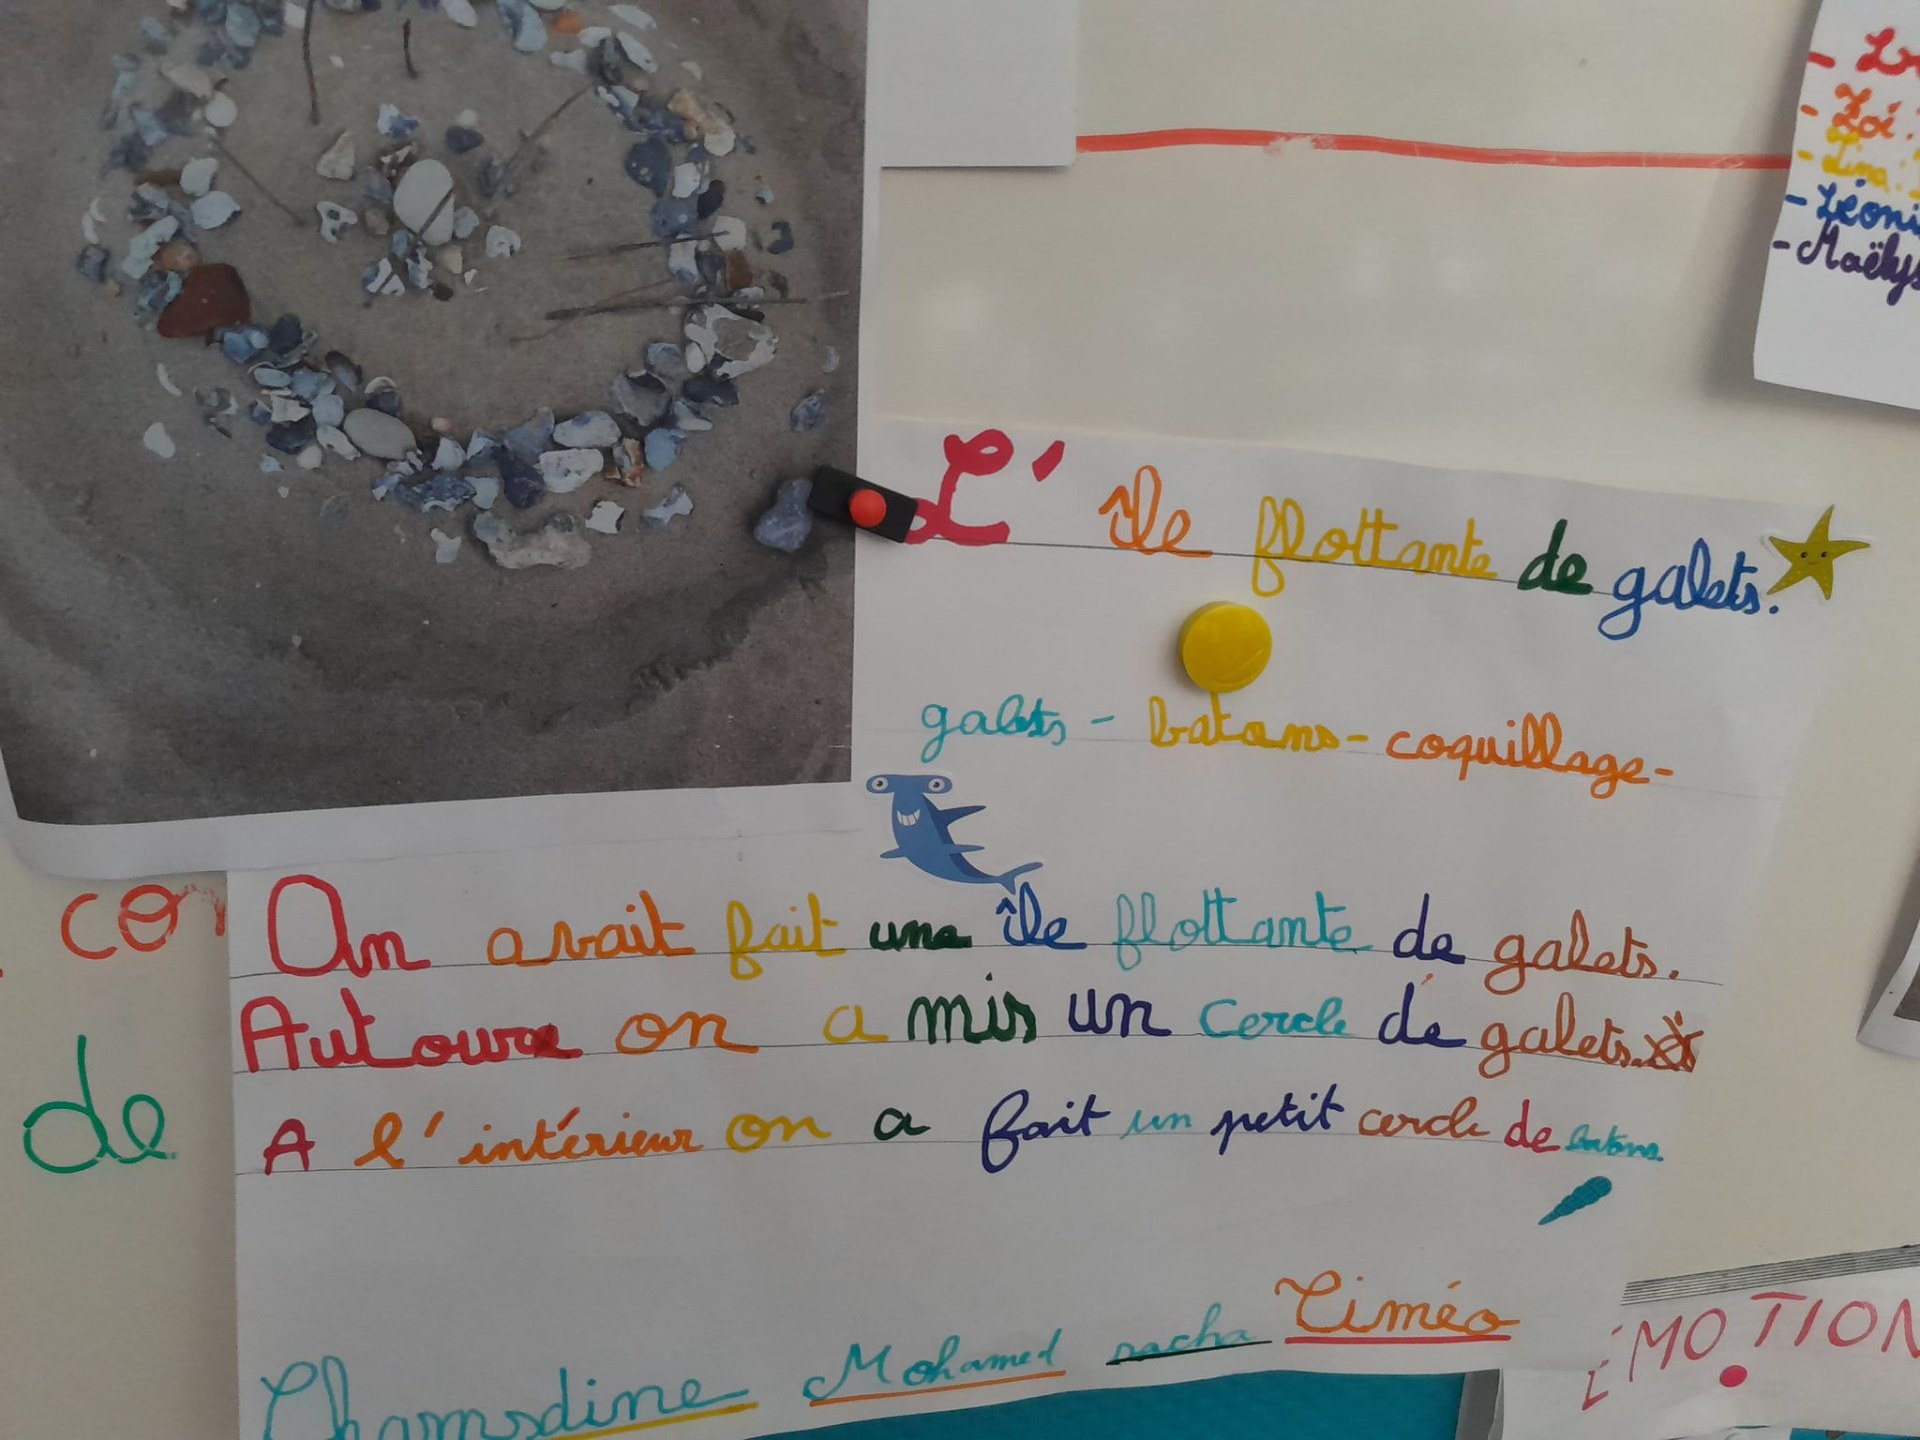 L' île flottante de galets.
galets - batons - coquillage -
On avait fait une île flottante de galets.
Autour on a mis un cercle de galets.
A l'intérieur on a fait un petit cercle de batons.
Chamsdine Mohamed sacha Timéo
de
- Zoé :
- Lina :
- Léoni
- Maëlys
EMOTION